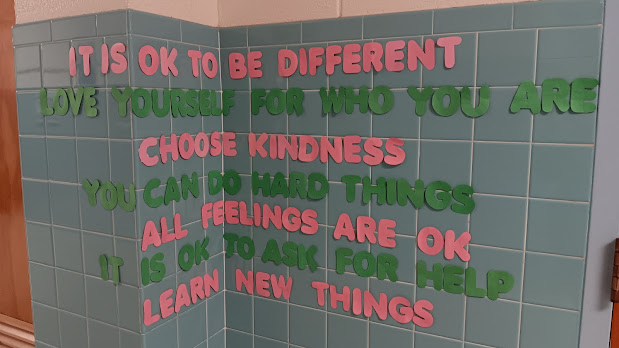 IT IS OK TO BE DIFFERENT
LOVE YOURSELF FOR WHO YOU ARE
CHOOSE KINDNESS
YOU CAN DO HARD THINGS
ALL FEELINGS ARE OK
IT IS OK TO ASK FOR HELP
LEARN NEW THINGS